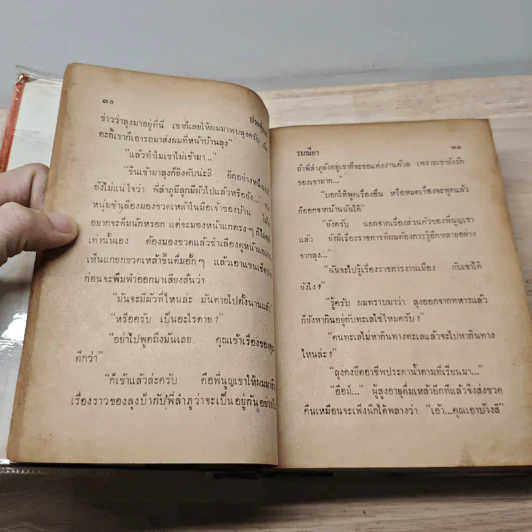 ๓๐
ข่าวว่าลุงมาอยู่ที่นี่ เขาก็เลยให้ผมมาพบลุงครับ
อะก็เขาก็เอารถมาส่งผมที่หน้าบ้านลุง"
"แล้วทำไมเขาไม่เข้ามา..."
"ขืนเข้ามาลุงก็ยิงดับน่ะสิ อีกอย่างหนึ่ง
ยังไม่แน่ใจว่า พี่ลำภูมีลูกมีผัวไปแล้วหรือยัง..."
หนุ่มชำเลืองมองขวดเหล้าในมือเจ้าของบ้าน
อยากจะดื่มนักหรอก แต่จะมองหน้าแกตรง ๆ ก็
เท่านั้นเอง ต้องมองขวดแล้วชำเลืองดูหน้าแกแทน
เห็นแกยกขวดเหล้าขึ้นดื่มอั้ก ๆ แล้วเอาแขนเช็ด
ก่อนจะพึมพำออกมาเสียงลั่นว่า
"มันจะมีผัวที่ไหนล่ะ มันตายไปตั้งนานแล้ว
"หรือครับ เป็นอะไรตาย?"
"อย่าไปพูดถึงมันเลย คุณเข้าเรื่องของคุณ
ดีกว่า"
"ก็เข้าแล้วล่ะครับ คือพี่นูญเขาให้ผมมา
เรื่องราวของลุงบ้ากับพี่ลำภูว่าจะเป็นอยู่กัน
รมณียา
๓๑
ถ้าพี่ลำภูยังอยู่เขาก็จะขอแต่งงานด้วย เพราะเขายังรัก
ของเขามาก..."
"บอกให้พูดเรื่องอื่น หรือหมดเรื่องจะพูดแล้ว
ก็ออกจากบ้านฉันได้"
"ยังครับ นอกจากเรื่องส่วนตัวของพี่นูญเขา
แล้ว ยังมีเรื่องราชการที่ผมต้องการรู้อีกหลายอย่าง
จากลุง..."
"ฉันจะไปรู้เรื่องราชการงานเมือง กับเขาได้
ยังไง?"
"รู้ครับ ผมทราบมาว่า ลุงออกจากทหารแล้ว
ก็ยังหากินอยู่กับทะเลใช่ไหมครับ?"
"คนทะเลไม่หากินทางทะเลแล้วจะไปหากินทาง
ไหนล่ะ?"
"ลุงคงยึดอาชีพประดาน้ำตามที่เรียนมา..."
"ฮือม์..." ผู้สูงอายุดื่มเหล้าอีกทีแล้วจึงส่งขวด
คืนเหมือนจะเพิ่งนึกได้พลางว่า "เอ้า...คุณเอาบ้างสิ